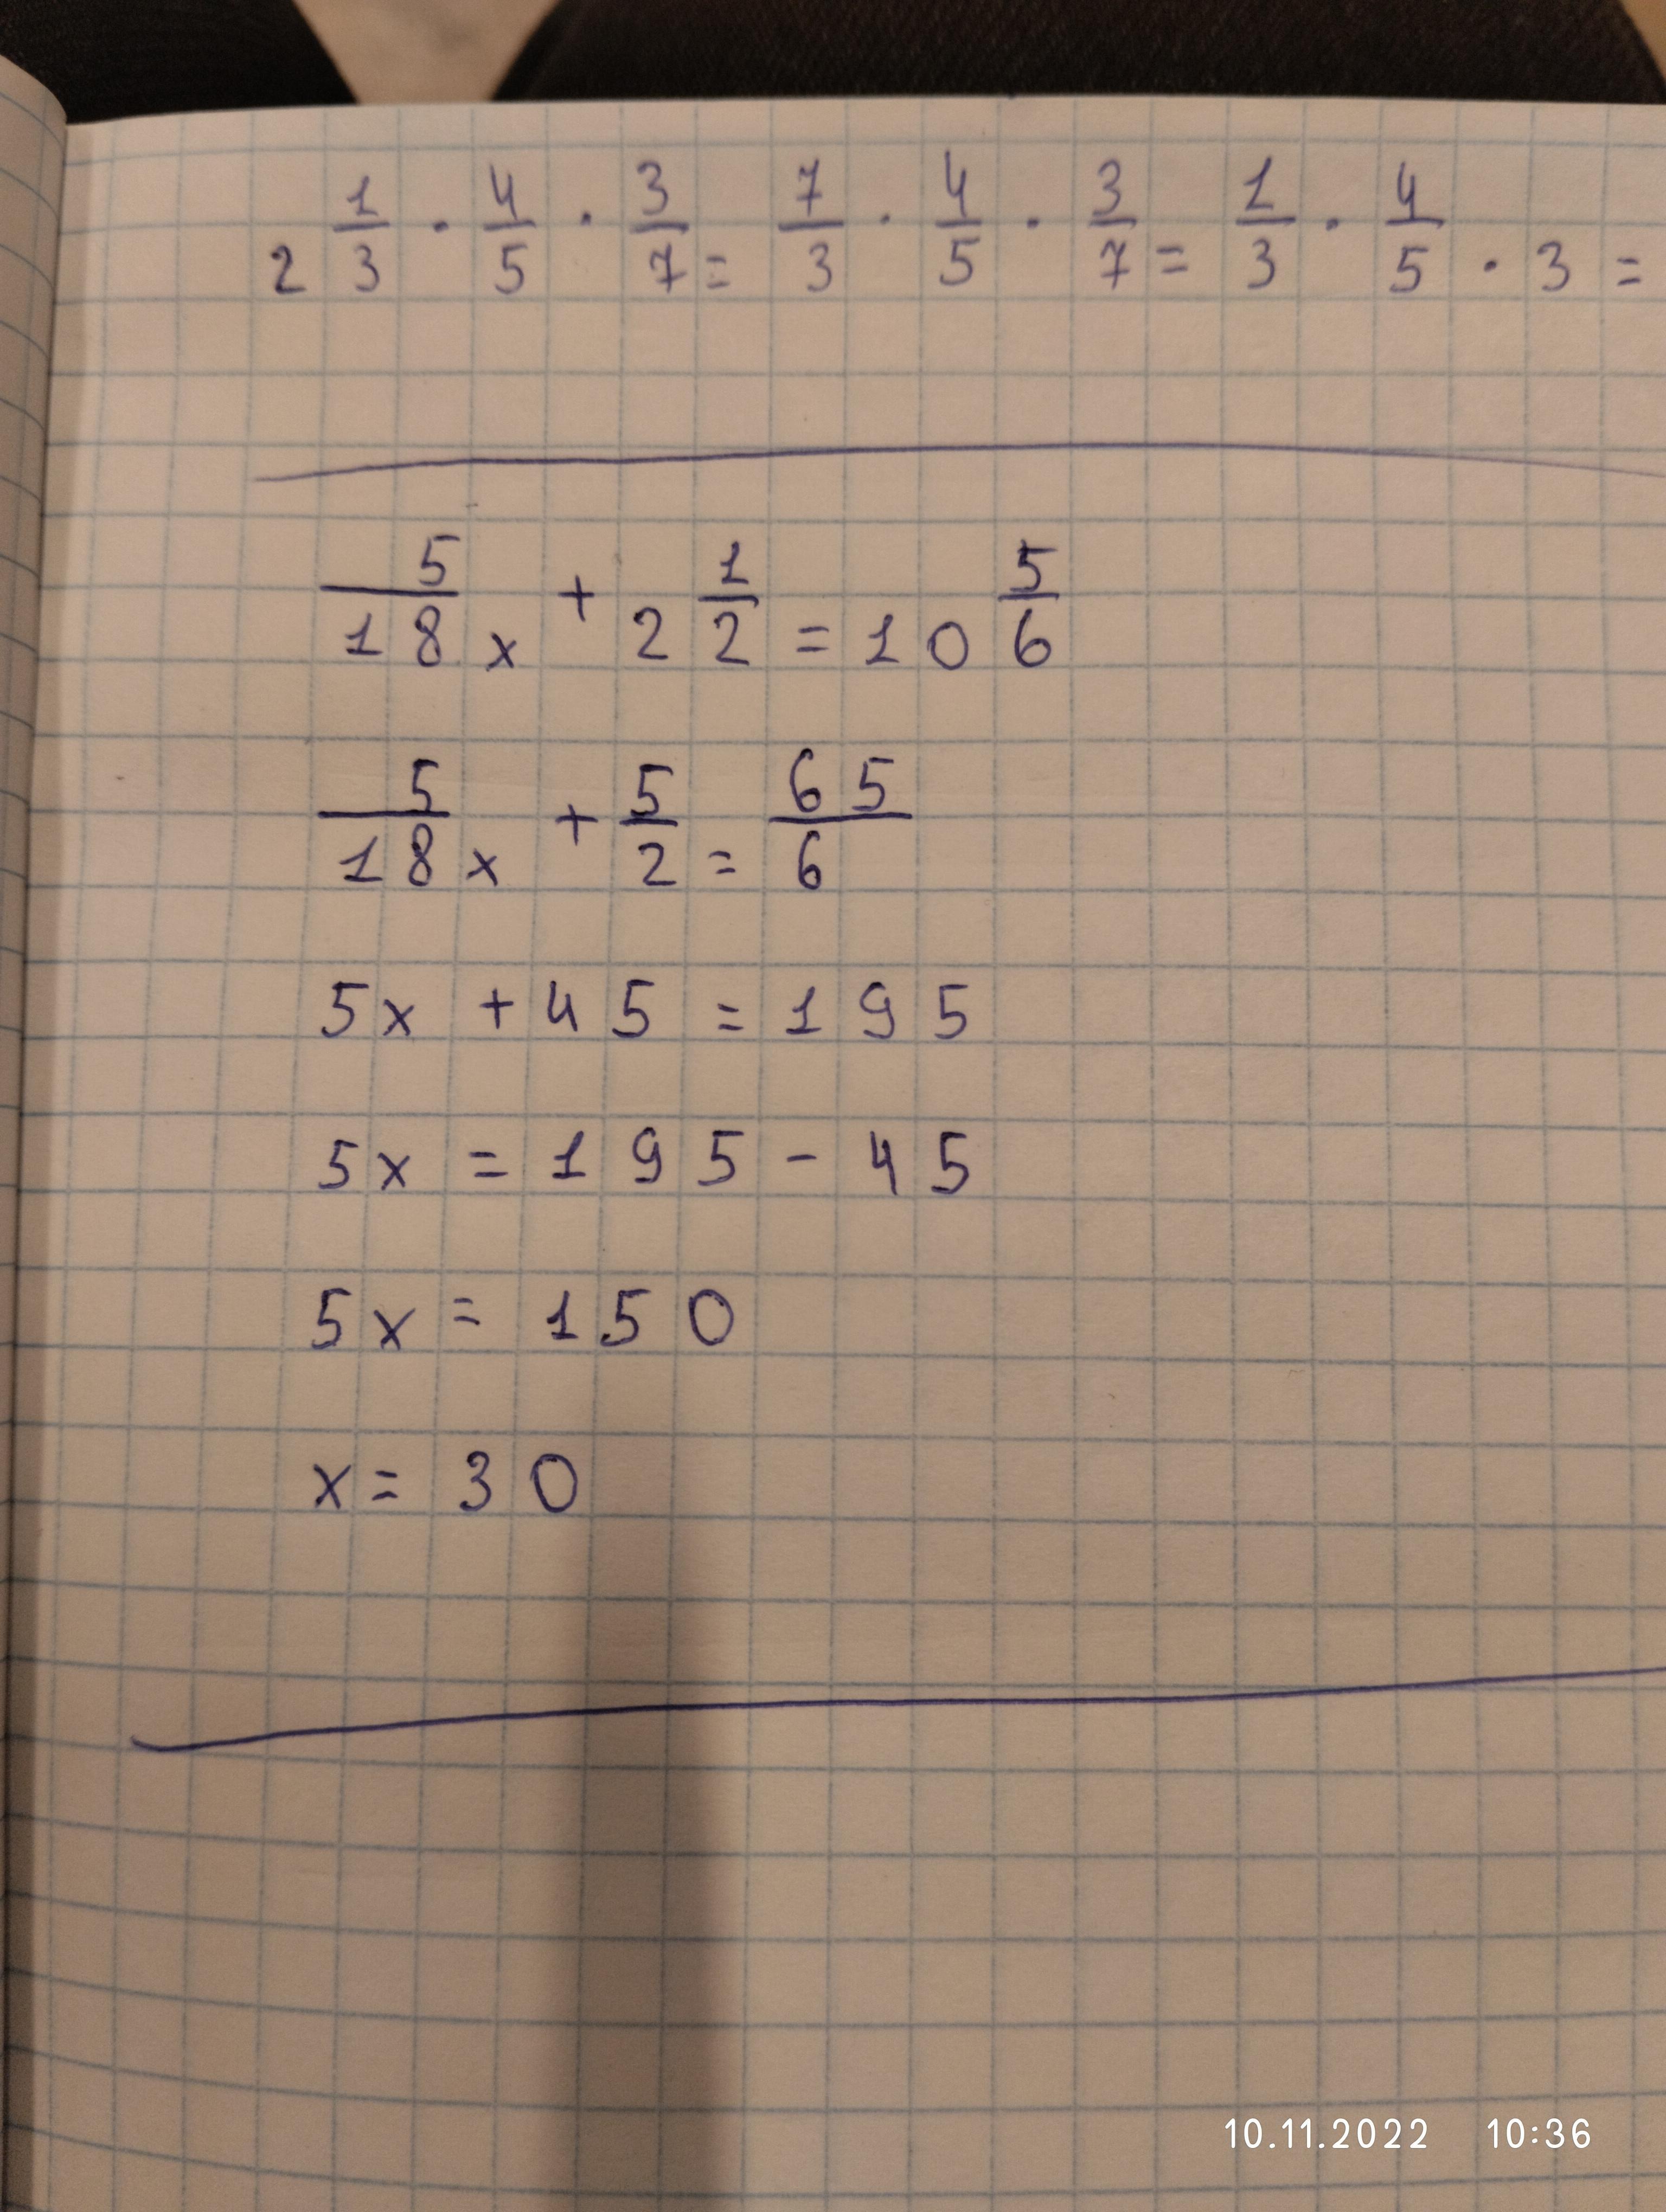 2 1/3 · 4/5 · 3/7 = 7/3 · 4/5 · 3/7 = 1/3 · 4/5 · 3 =
5/18 x + 2 1/2 = 10 5/6
5/18 x + 5/2 = 65/6
5x + 45 = 195
5x = 195 - 45
5x = 150
x = 30
10.11.2022 10:36